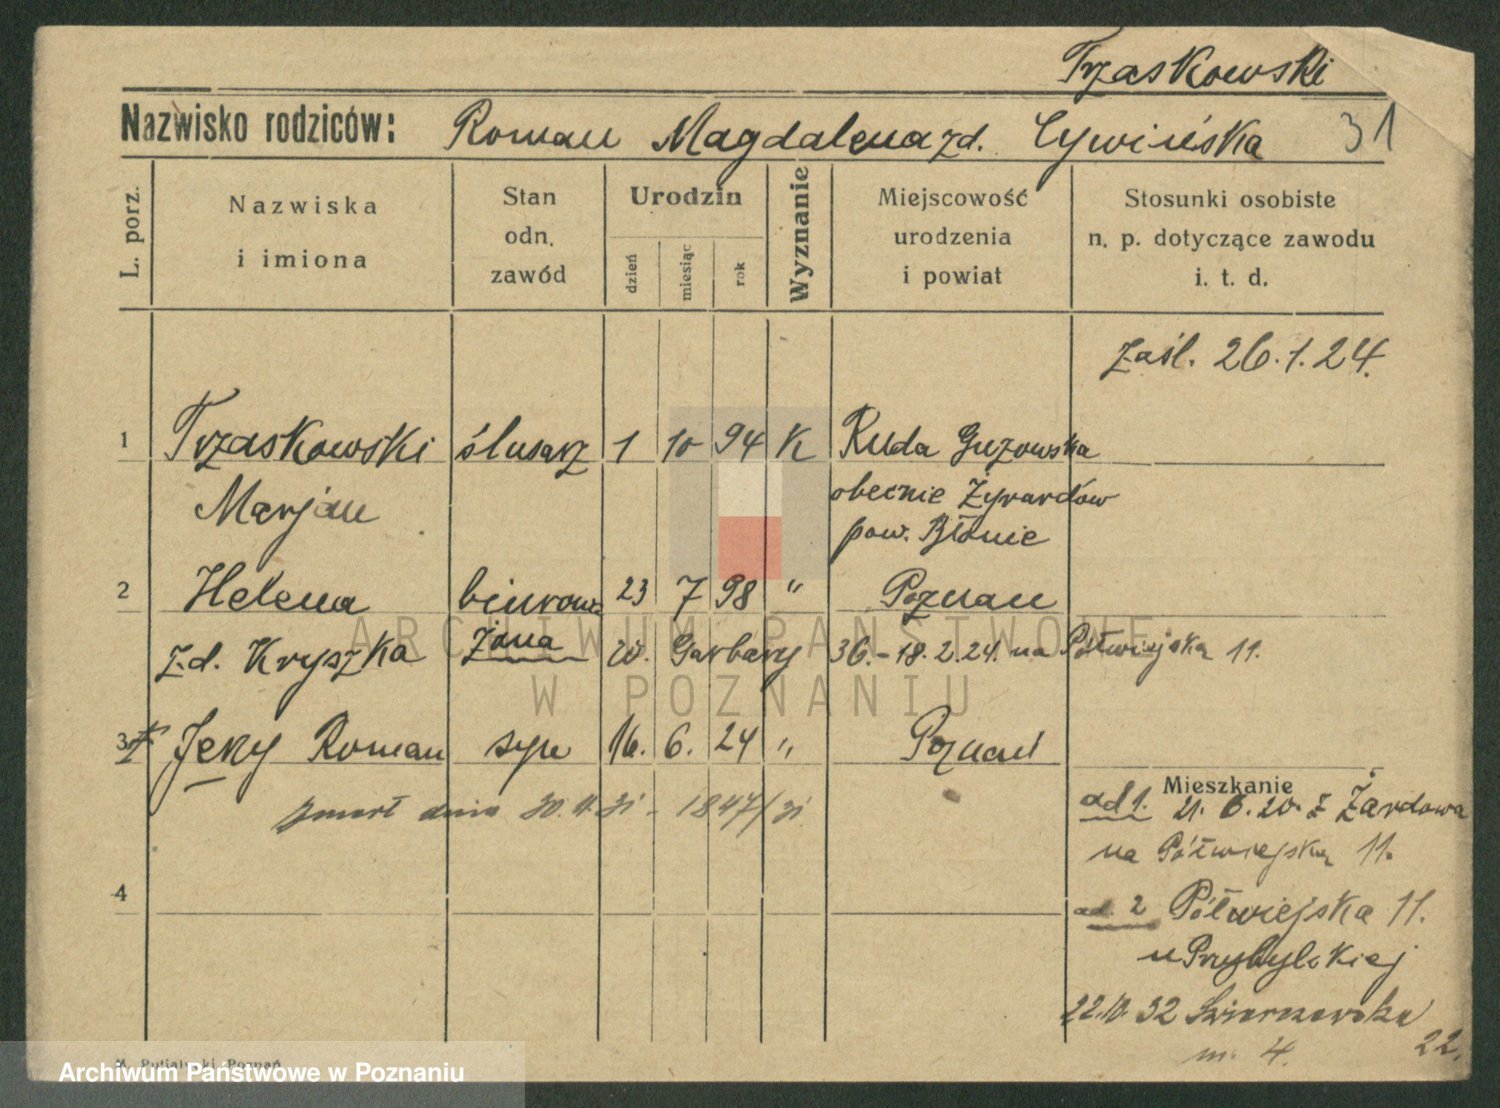 Trzaskowski
Nazwisko rodziców: Roman Magdalena zd. Cywińska 31
L. porz.
Nazwiska
i imiona
Stan
odn.
zawód
Urodzin
dzień
miesiąc
rok
Wyznanie
Miejscowość
urodzenia
i powiat
Stosunki osobiste
n. p. dotyczące zawodu
i. t. d.
Zaśl. 26.1.24.
1 Trzaskowski ślusarz 1 10 94 K Ruda Guzowska
Marjan obecnie Żyrardów
pow. Błonie
2 Helena biurow. 23 7 98 " Poznań
z.d. Kryszka żona W. Garbary 36. - 18.2.24. na Półwiejską 11.
3 Jerzy Roman syn 16. 6. 24 " Poznań
zmarł dnia 30.4.31 - 1847/31
Mieszkanie
ad 1. 21. 6. 20. z Żardowa
na Półwiejską 11.
4
ad. 2 Półwiejska 11.
u Przybylskiej
22.10.32 22.
m. 4.
Poznań
ARCHIWUM PAŃSTWOWE
W POZNANIU
Archiwum Państwowe w Poznaniu